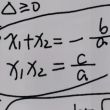 △≥0
x₁+x₂=-b/a
x₁x₂=c/a